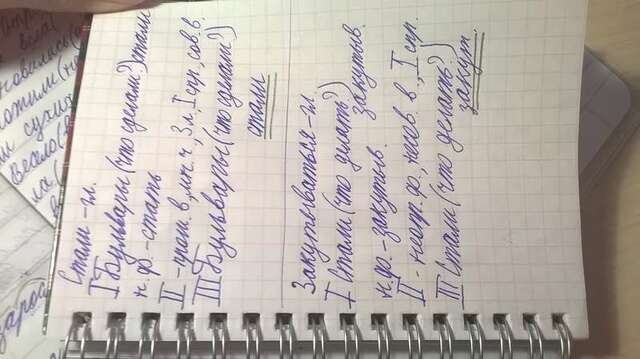 Стали -гл.
I Бульвары (что сделали?) стали
н.ф.-стать
II -прош.в., мн.ч., 3л., I спр., сов.в.
III Бульвары (что сделали?)
стали
Закутываться -гл.
I Стали (что делать?) закутыв.
н.ф.-закутыв.
II - неопр.ф., несов.в., I спр.
III Стали (что делать?)
закут.